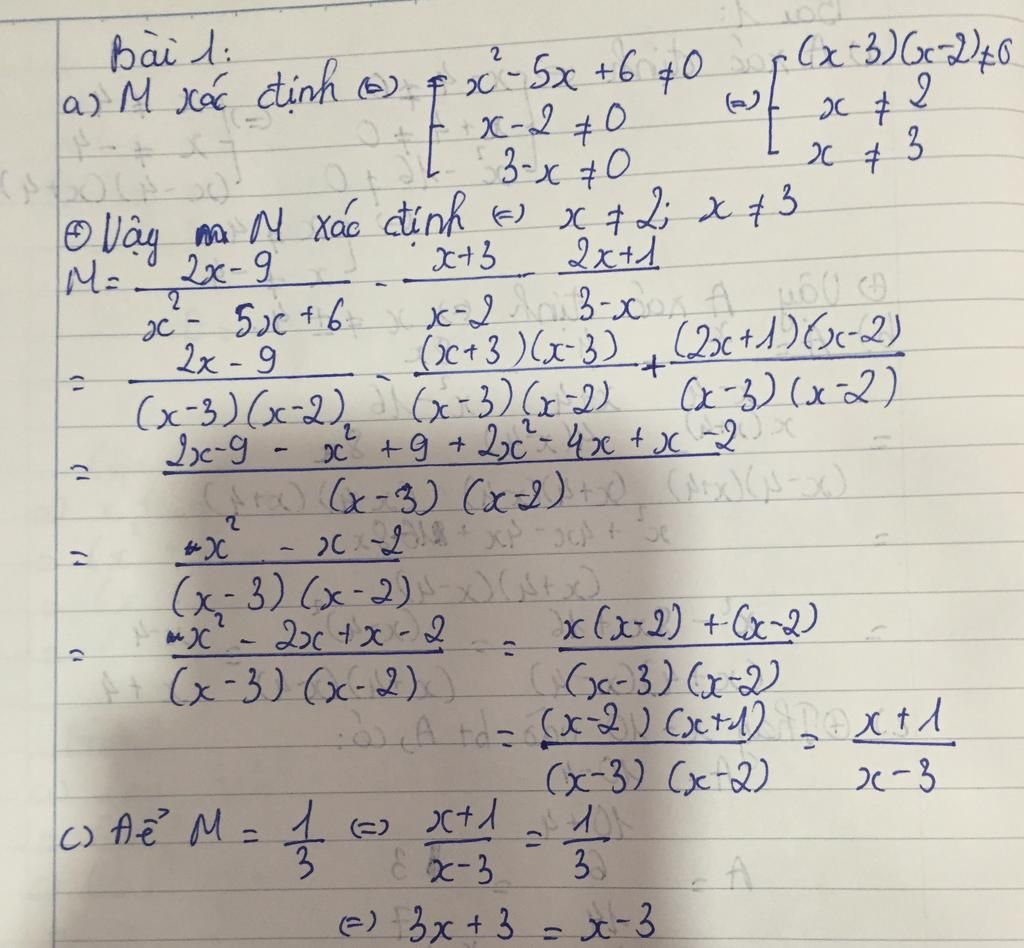 Bài 1:
a) M xác định (=) [ x² - 5x + 6 ≠ 0 (=) [ (x-3)(x-2) ≠ 0
x - 2 ≠ 0 x ≠ 2
3 - x ≠ 0 x ≠ 3
⊕ Vậy M xác định (=) x ≠ 2; x ≠ 3
M = (2x - 9)/(x² - 5x + 6) - (x+3)/(x-2) - (2x+1)/(3-x)
= (2x - 9)/((x-3)(x-2)) - ((x+3)(x-3))/((x-3)(x-2)) + ((2x+1)(x-2))/((x-3)(x-2))
= (2x-9 - x² + 9 + 2x² - 4x + x - 2)/((x-3)(x-2))
= (x² - x - 2)/((x-3)(x-2))
= (x² - 2x + x - 2)/((x-3)(x-2)) = (x(x-2) + (x-2))/((x-3)(x-2))
= ((x-2)(x+1))/((x-3)(x-2)) = (x+1)/(x-3)
c) Để M = 1/3 (=) (x+1)/(x-3) = 1/3
(=) 3x + 3 = x - 3